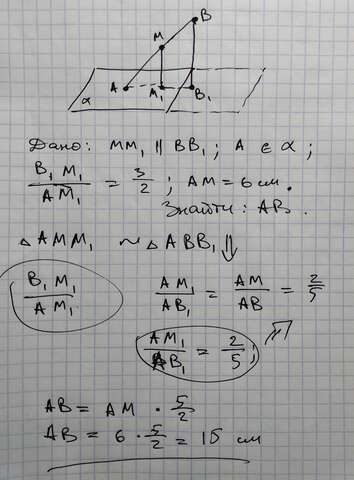 B
M
A
M₁
B₁
α
Дано: MM₁ ∥ BB₁; A ∈ α;
B₁M₁/AM₁ = 3/2; AM = 6 см.
Знайти: AB.
△AMM₁ ~ △ABB₁ ⇓
B₁M₁/AM₁
AM₁/AB₁ = AM/AB = 2/5
AM₁/AB₁ = 2/5; ⇒
AB = AM · 5/2
AB = 6 · 5/2 = 15 см